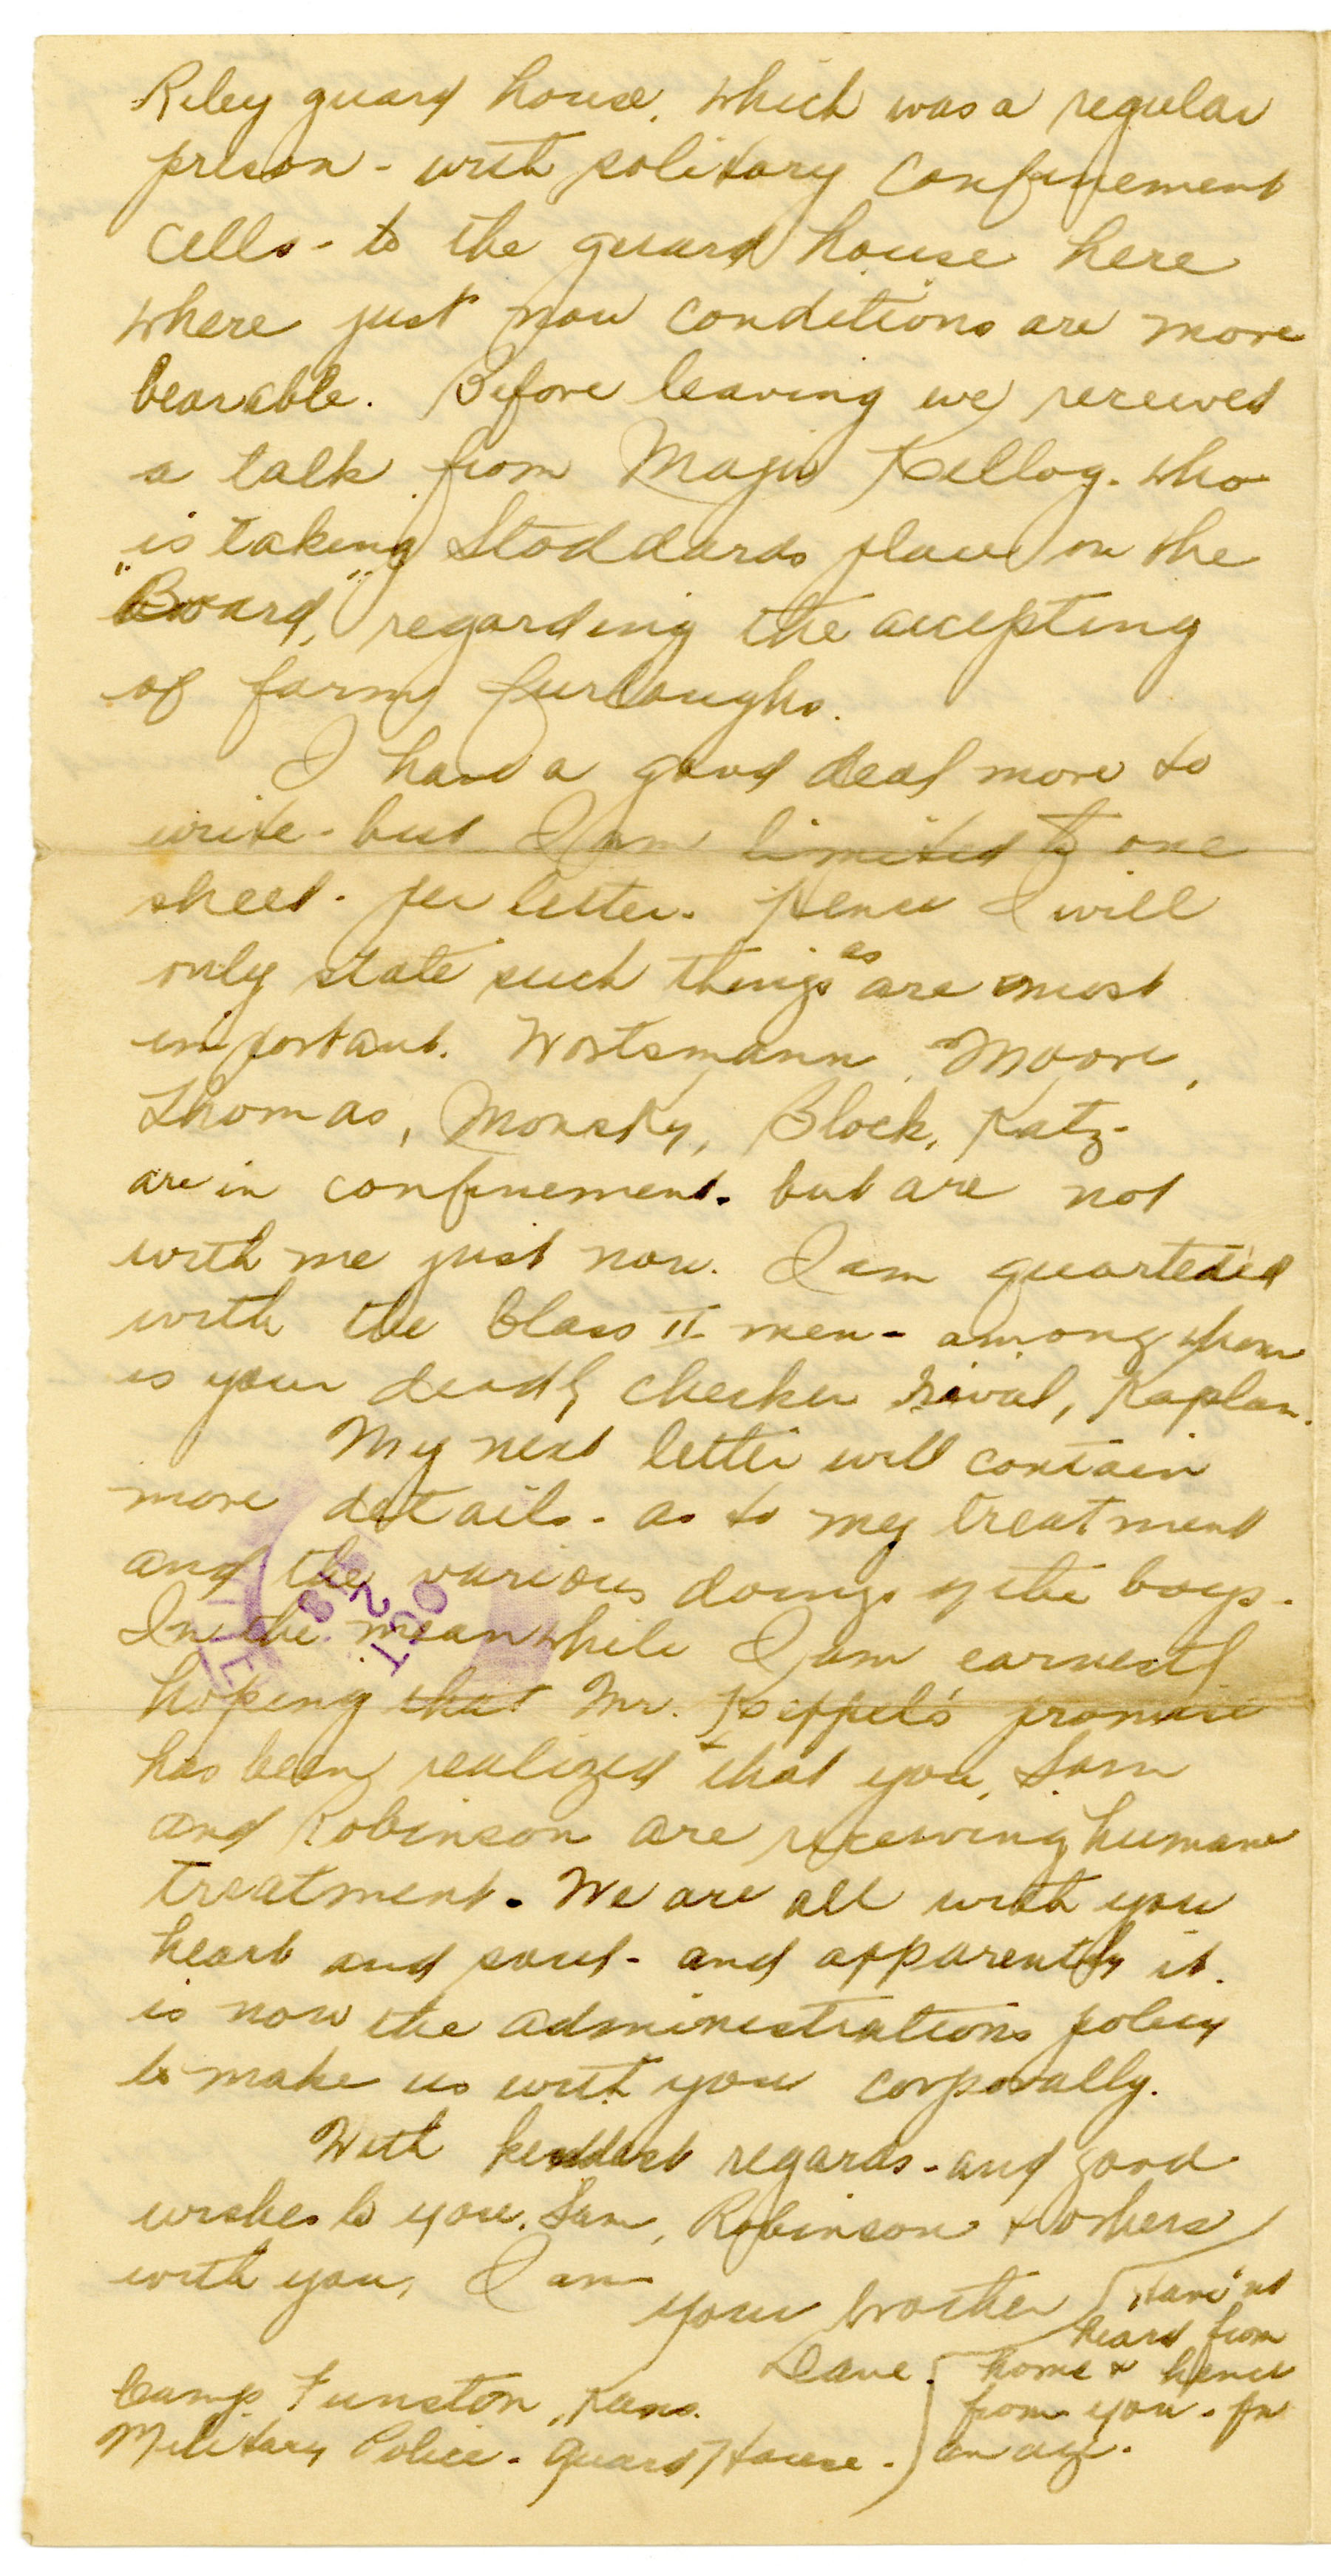 Riley guard house, which was a regular
prison - with solitary confinement
cells - to the guard house here
where just now conditions are more
bearable. Before leaving we received
a talk from Major Kellog. who
is taking Stoddards place on the
"Board," regarding the accepting
of farm furloughs.
I have a good deal more to
write - but I am limited to one
sheet - per letter. Hence I will
only state such things as are most
important. Wortsmann, Moore,
Thomas, Monsky, Block, Katz -
are in confinement. but are not
with me just now. I am quartered
with the Class II men - among whom
is your deadly checker rival, Kaplan.
My next letter will contain
more details - as to my treatment
and the various doings of the boys -
In the meanwhile I am earnestly
hoping that Mr. Keppel's promise
has been realized + that you, Sam
and Robinson are receiving humane
treatment. We are all with you
heart and soul - and apparently it
is now the administrations policy
to make us with you corporally.
With kindest regards - and good
wishes to you, Sam, Robinson + others
with you, I am
your brother
Dave.
Camp Funston, Kans.
Military Police - Guard House -
Have'nt
heard from
home + hence
from you - for
an age.
OCT
2
8